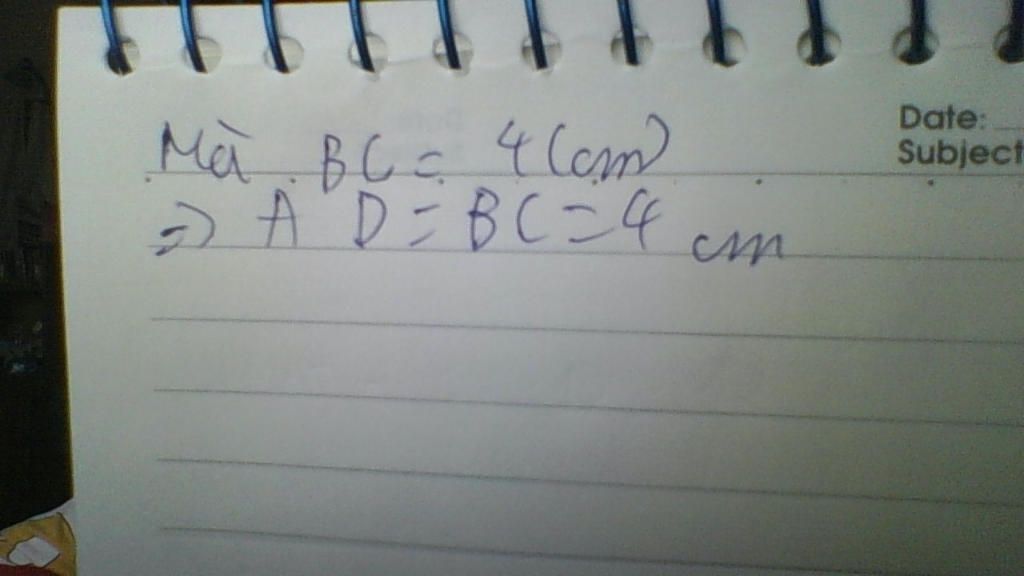 Date:
Subject
Mà BC = 4 (cm)
=> AD = BC = 4 cm